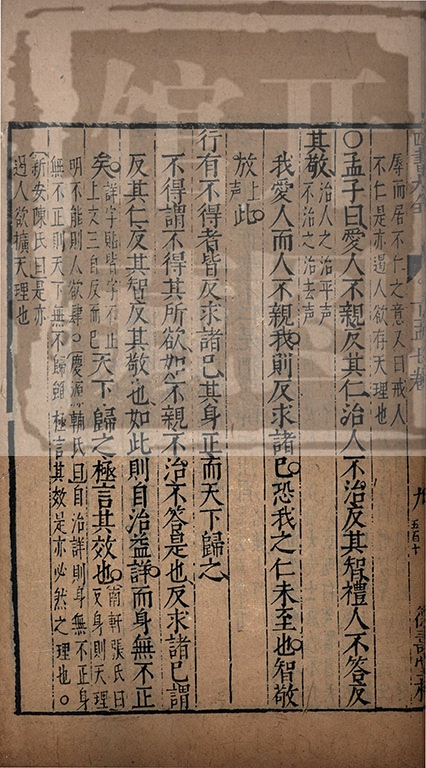 辱而居不仁之意又曰戒人
不仁是亦遏人欲存天理也
○孟子曰愛人不親反其仁治人不治反其智禮人不答反
其敬治人之治平聲
不治之治去声
我愛人而人不親我則反求諸己恐我之仁未至也智敬
放上
声此
行有不得者皆反求諸己其身正而天下歸之
不得謂不得其所欲如不親不治不答是也反求諸己謂
反其仁反其智反其敬也如此則自治益詳而身無不正
矣詳字貼皆字不正
上文三自反而已天下歸之極言其效也南軒張氏曰
反身則天理
明不能則人欲肆慶源輔氏曰自治詳則身無不正身
無不正則天下無不歸極言其效是亦必然之理也
新安陳氏曰是亦
遏人欲擴天理也
九
五百十